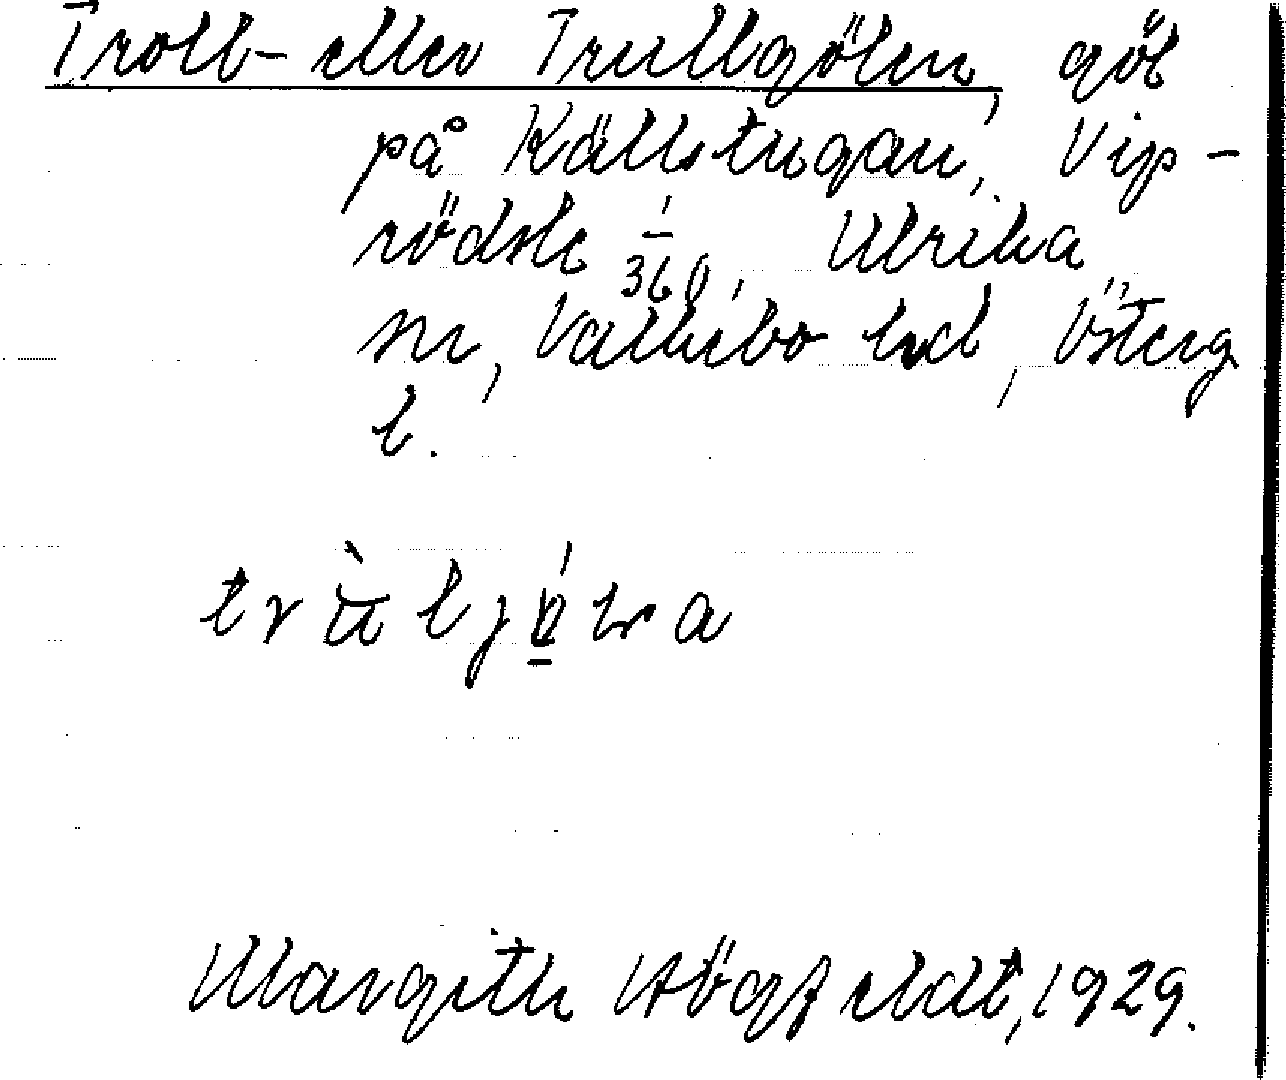 Troll- eller Trullgölen, göl
på Källstugan, Vip-
rödsle 1/360, Ulrika
sn, Valkebo hd, Österg
l.
Margith Högfeldt, 1929.